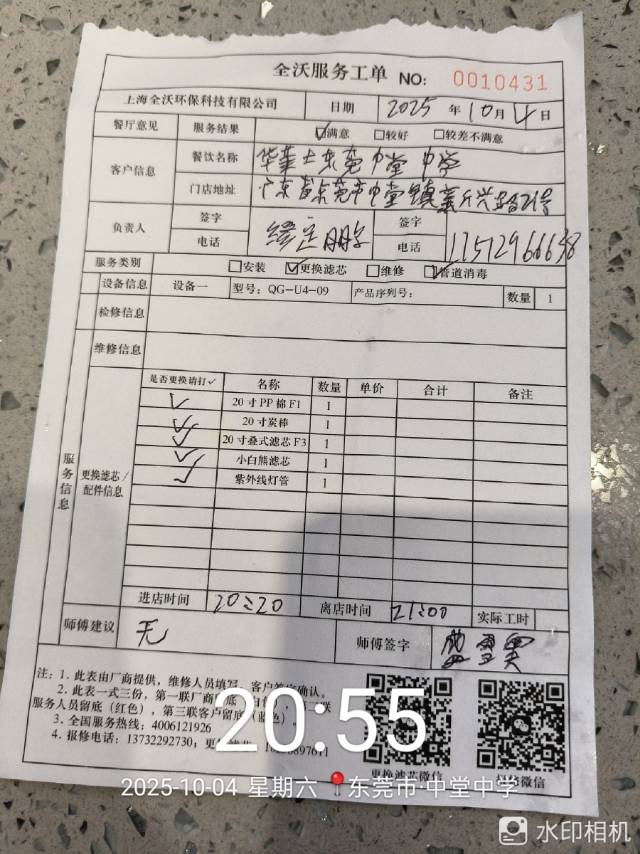 全沃服务工单 NO: 0010431
上海全沃环保科技有限公司 日期 2025 年 10 月 4 日
餐厅意见 服务结果 ☑满意 □较好 □较差不满意
客户信息 餐饮名称 华莱士东莞中堂中学
门店地址 广东省东莞市中堂镇
负责人 签字 签字
电话 电话
服务类别 □安装 ☑更换滤芯 □维修 ☑管道消毒
设备信息 设备一 型号: QG-U4-09 产品序列号: 数量 1
检修信息
维修信息
服务信息
更换滤芯/配件信息
是否更换请打✓ 名称 数量 单价 合计 备注
✓ 20寸PP棉F1 1
✓ 20寸炭棒 1
✓ 20寸叠式滤芯F3 1
✓ 小白熊滤芯 1
✓ 紫外线灯管 1
进店时间 20:20 离店时间 21:00 实际工时
师傅建议 无 师傅签字
注: 1. 此表由厂商提供, 维修人员填写, 客户签字确认。
2. 此表一式三份, 第一联厂商 底
服务人员留底 (红色), 第三联客户留底 (蓝色)
3. 全国服务热线: 4006121926
4. 报修电话: 13732292730;
更换滤芯微信 微信
20:55
2025-10-04 星期六 东莞市·中堂中学
水印相机